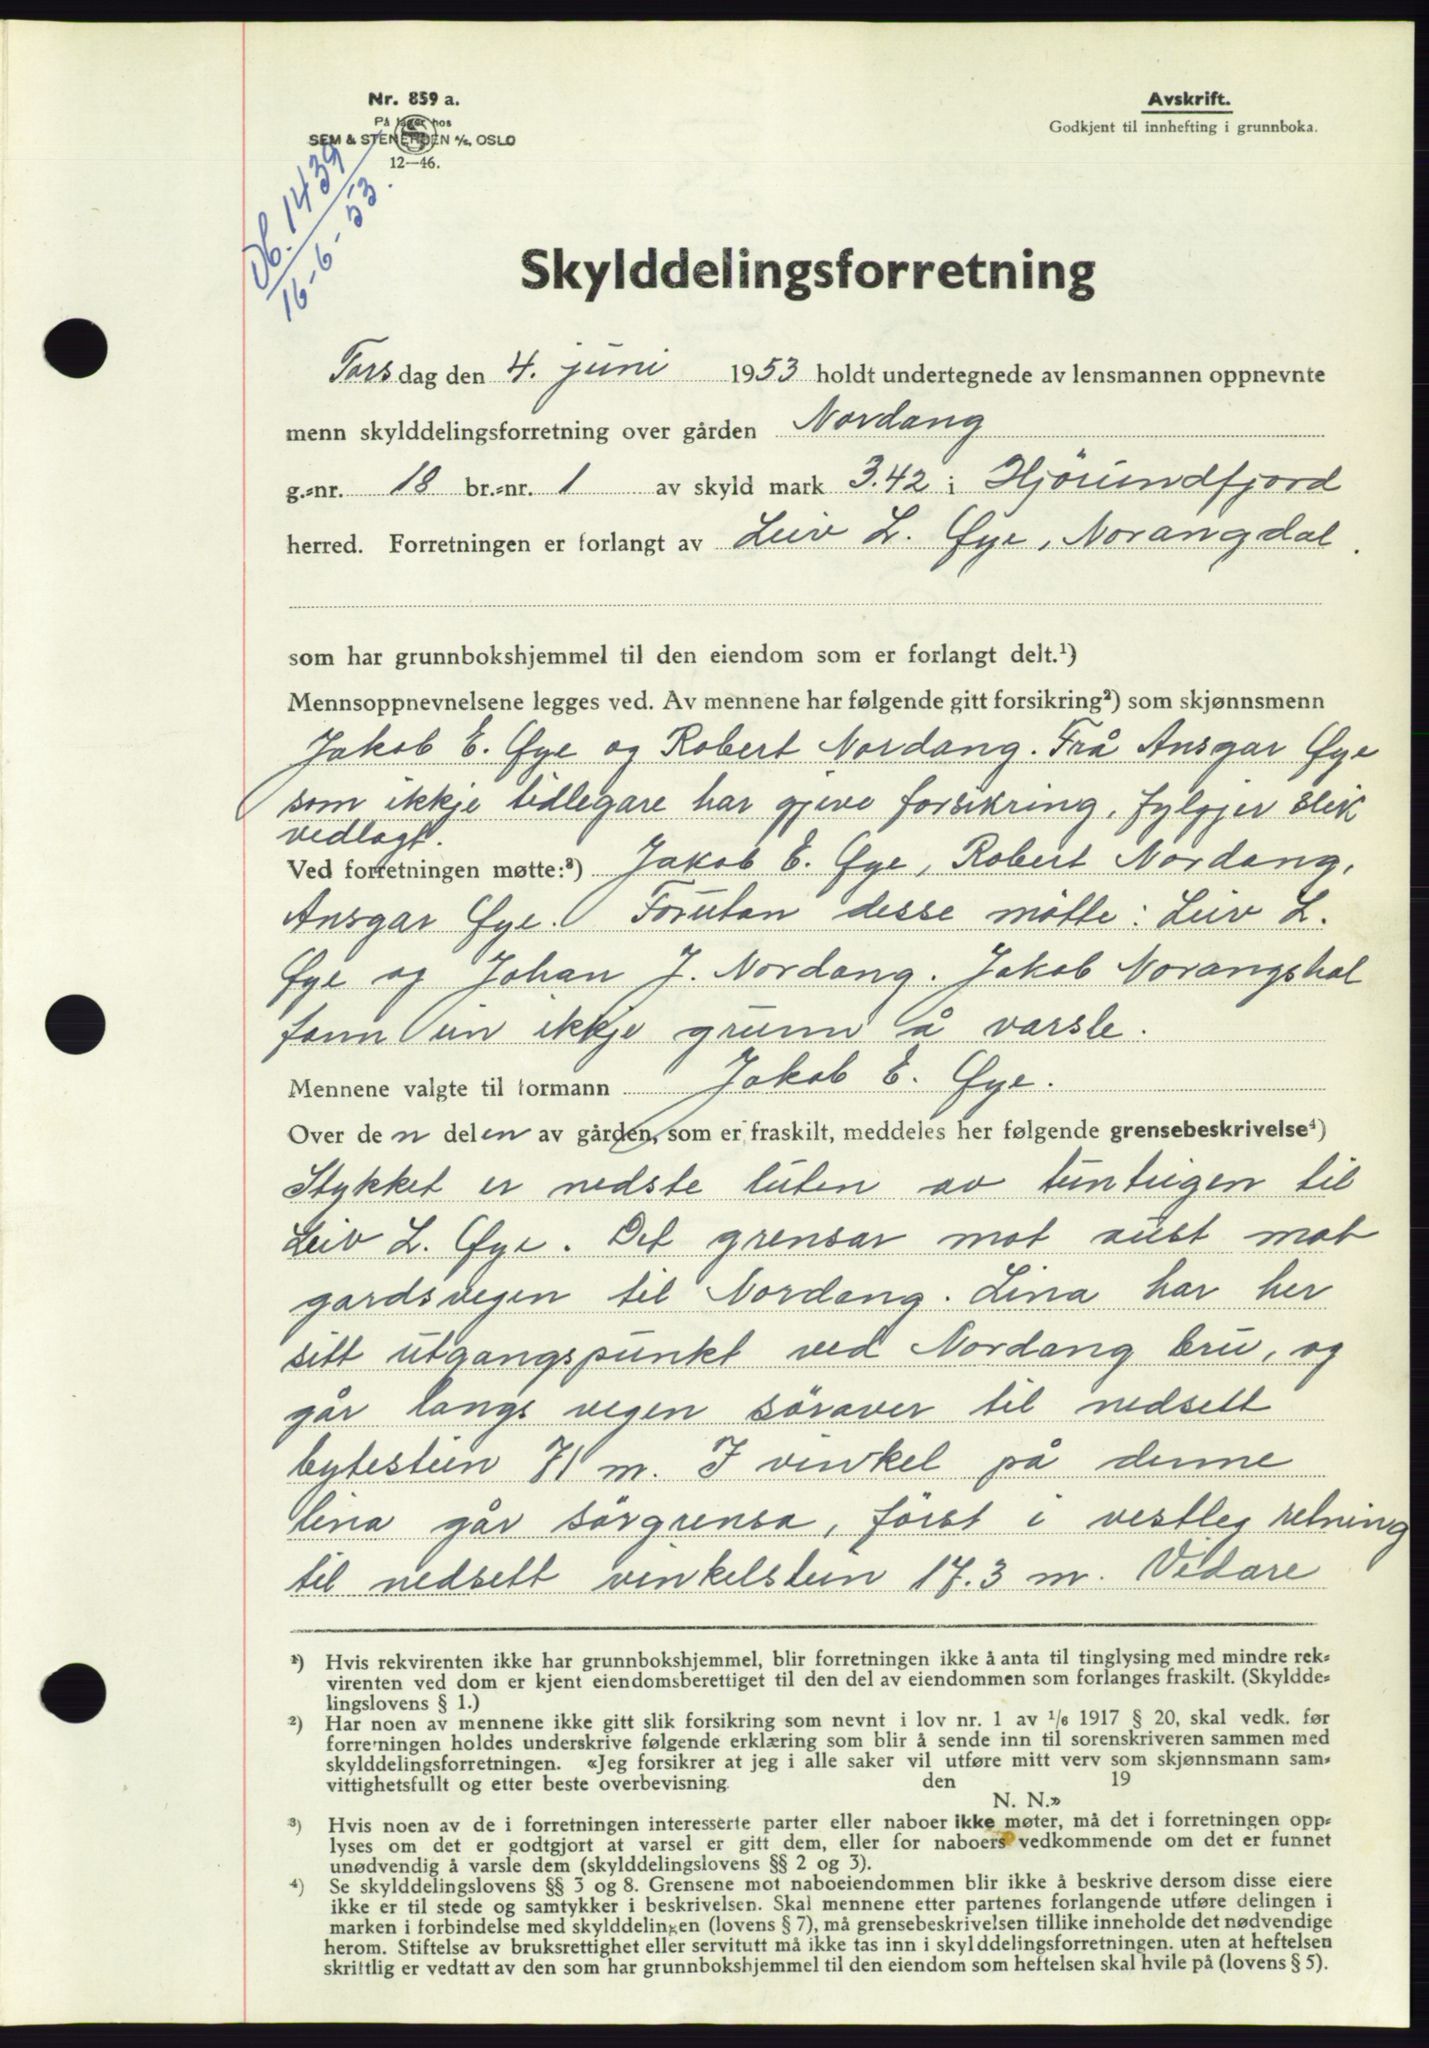 Nr. 859 a.
På lager hos
SEM & STENERSEN A/S, OSLO
12—46.
Avskrift.
Godkjent til innhefting i grunnboka.
Db. 1439
16-6-53.
Skylddelingsforretning
Torsdag den 4. juni 1953 holdt undertegnede av lensmannen oppnevnte
menn skylddelingsforretning over gården Nordang
g.=nr. 18 br.=nr. 1 av skyld mark 3.42 i Hjörundfjord
herred. Forretningen er forlangt av Leiv L. Øye, Norangdal.
som har grunnbokshjemmel til den eiendom som er forlangt delt.¹)
Mennsoppnevnelsene legges ved. Av mennene har følgende gitt forsikring²) som skjønnsmenn
Jakob E. Øye og Robert Nordang. Frå Ansgar Øye
som ikkje tidlegare har gjeve forsikring, fylgjer slik
vedlagt.
Ved forretningen møtte:³) Jakob E. Øye, Robert Nordang,
Ansgar Øye. Forutan desse mötte: Leiv L.
Øye og Johan J. Nordang. Jakob Norangshal
fann ein ikkje grunn å varsle.
Mennene valgte til formann Jakob E. Øye.
Over den delen av gården, som er fraskilt, meddeles her følgende grensebeskrivelse⁴)
Stykket er nedste luten av tunteigen til
Leiv L. Øye. Det grensar mot aust mot
gardsvegen til Nordang. Lina har her
sitt utgangspunkt ved Nordang bru, og
går langs vegen söraver til nedsett
bytestein 71 m. I vinkel på denne
lina går sörgrensa, först i vestleg retning
til nedsett vinkelstein 17.3 m. Vidare
¹) Hvis rekvirenten ikke har grunnbokshjemmel, blir forretningen ikke å anta til tinglysing med mindre rek=
virenten ved dom er kjent eiendomsberettiget til den del av eiendommen som forlanges fraskilt. (Skyldde=
lingslovens § 1.)
²) Har noen av mennene ikke gitt slik forsikring som nevnt i lov nr. 1 av 1/6 1917 § 20, skal vedk. før
forretningen holdes underskrive følgende erklæring som blir å sende inn til sorenskriveren sammen med
skylddelingsforretningen. «Jeg forsikrer at jeg i alle saker vil utføre mitt verv som skjønnsmann sam=
vittighetsfullt og etter beste overbevisning den 19
N. N.»
³) Hvis noen av de i forretningen interesserte parter eller naboer ikke møter, må det i forretningen opp=
lyses om det er godtgjort at varsel er gitt dem, eller for naboers vedkommende om det er funnet
unødvendig å varsle dem (skylddelingslovens §§ 2 og 3).
⁴) Se skylddelingslovens §§ 3 og 8. Grensene mot naboeiendommen blir ikke å beskrive dersom disse eiere
ikke er til stede og samtykker i beskrivelsen. Skal mennene etter partenes forlangende utføre delingen i
marken i forbindelse med skylddelingen (lovens § 7), må grensebeskrivelsen tillike inneholde det nødvendige
herom. Stiftelse av bruksrettighet eller servitutt må ikke tas inn i skylddelingsforretningen. uten at heftelsen
skriftlig er vedtatt av den som har grunnbokshjemmel til den eiendom som heftelsen skal hvile på (lovens § 5).